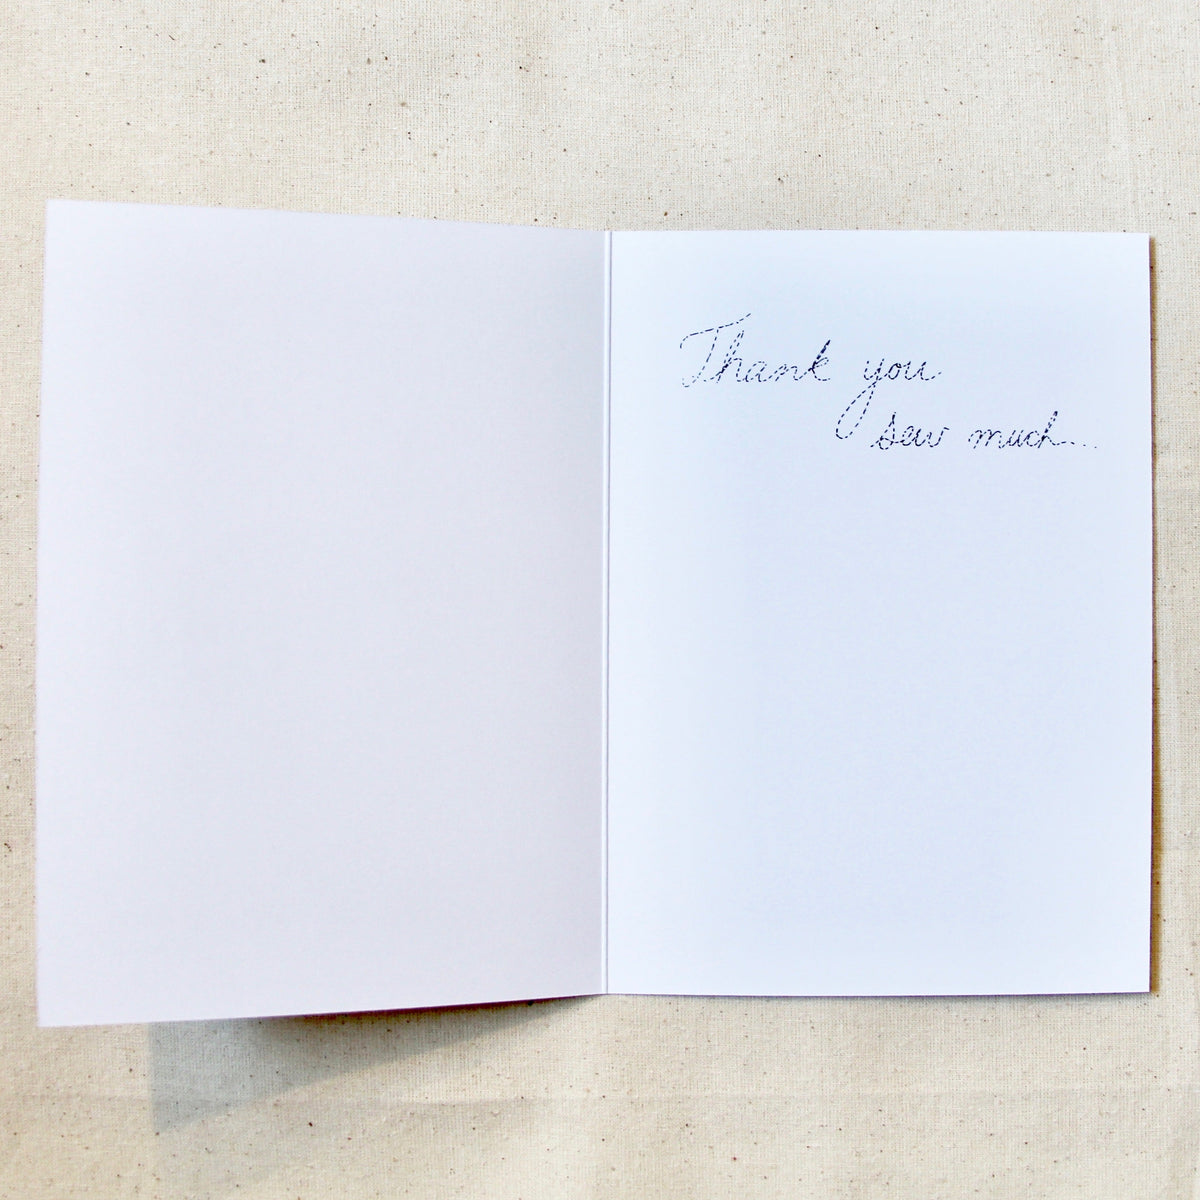 Thank you
sew much...